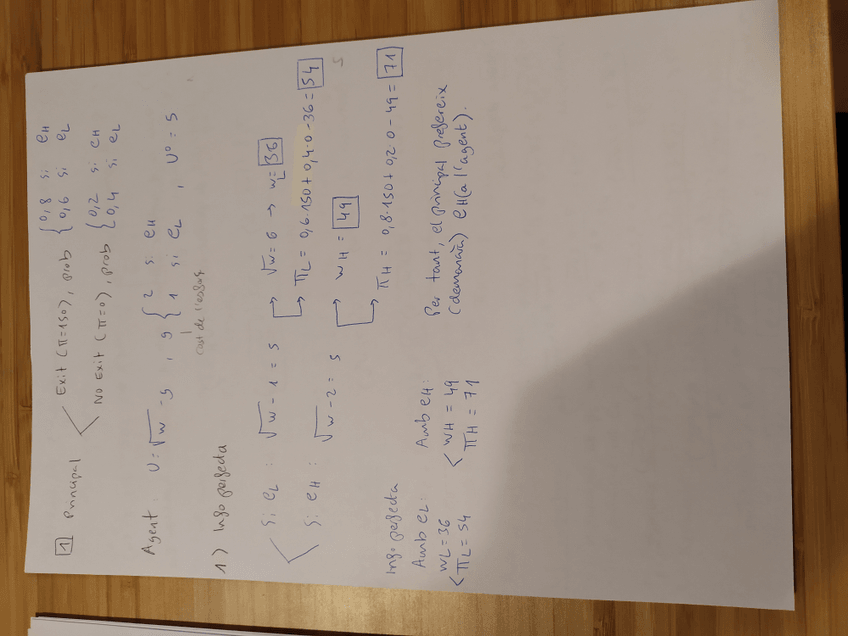 1 Principal
Exit (π=150), prob { 0,8 si eH
0,6 si eL
No Exit (π=0), prob { 0,2 si eH
0,4 si eL
Agent. U=√w -g , g { 2 si eH
1 si eL , U⁰ = 5
cost de l'esforç
1) Info perfecta
Si eL : √w - 1 = 5 → √w = 6 → wL = 36
πL = 0,6·150 + 0,4·0 - 36 = 54
Si eH : √w - 2 = 5 → wH = 49
πH = 0,8·150 + 0,2·0 - 49 = 71
Info perfecta
Amb eL:
wL = 36
πL = 54
Amb eH:
wH = 49
πH = 71
Per tant, el principal prefereix
(demanarà) eH (a l'agent).